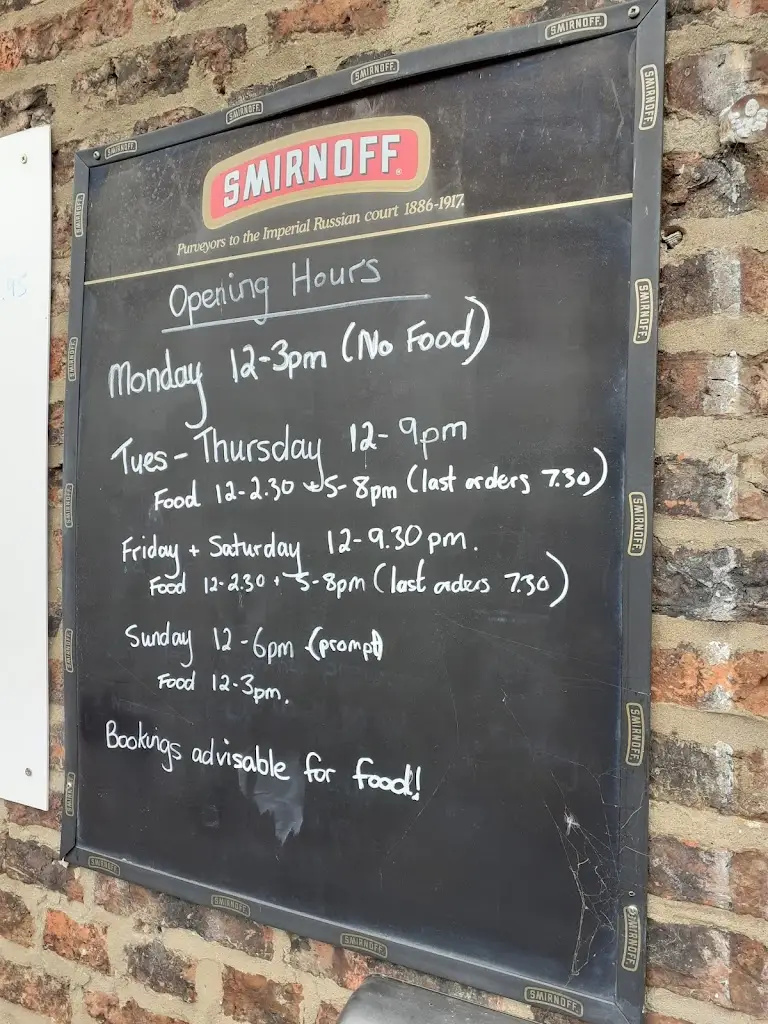 SMIRNOFF
Purveyors to the Imperial Russian court 1886-1917.
Opening Hours
Monday 12-3pm (No Food)
Tues - Thursday 12-9pm
Food 12-2.30 + 5-8pm (last orders 7.30)
Friday + Saturday 12-9.30pm.
Food 12-2.30 + 5-8pm (last orders 7.30)
Sunday 12-6pm (prompt)
Food 12-3pm.
Bookings advisable for food!
SMIRNOFF
SMIRNOFF
SMIRNOFF
SMIRNOFF
SMIRNOFF
SMIRNOFF
SMIRNOFF
SMIRNOFF
SMIRNOFF
SMIRNOFF
SMIRNOFF
SMIRNOFF
SMIRNOFF